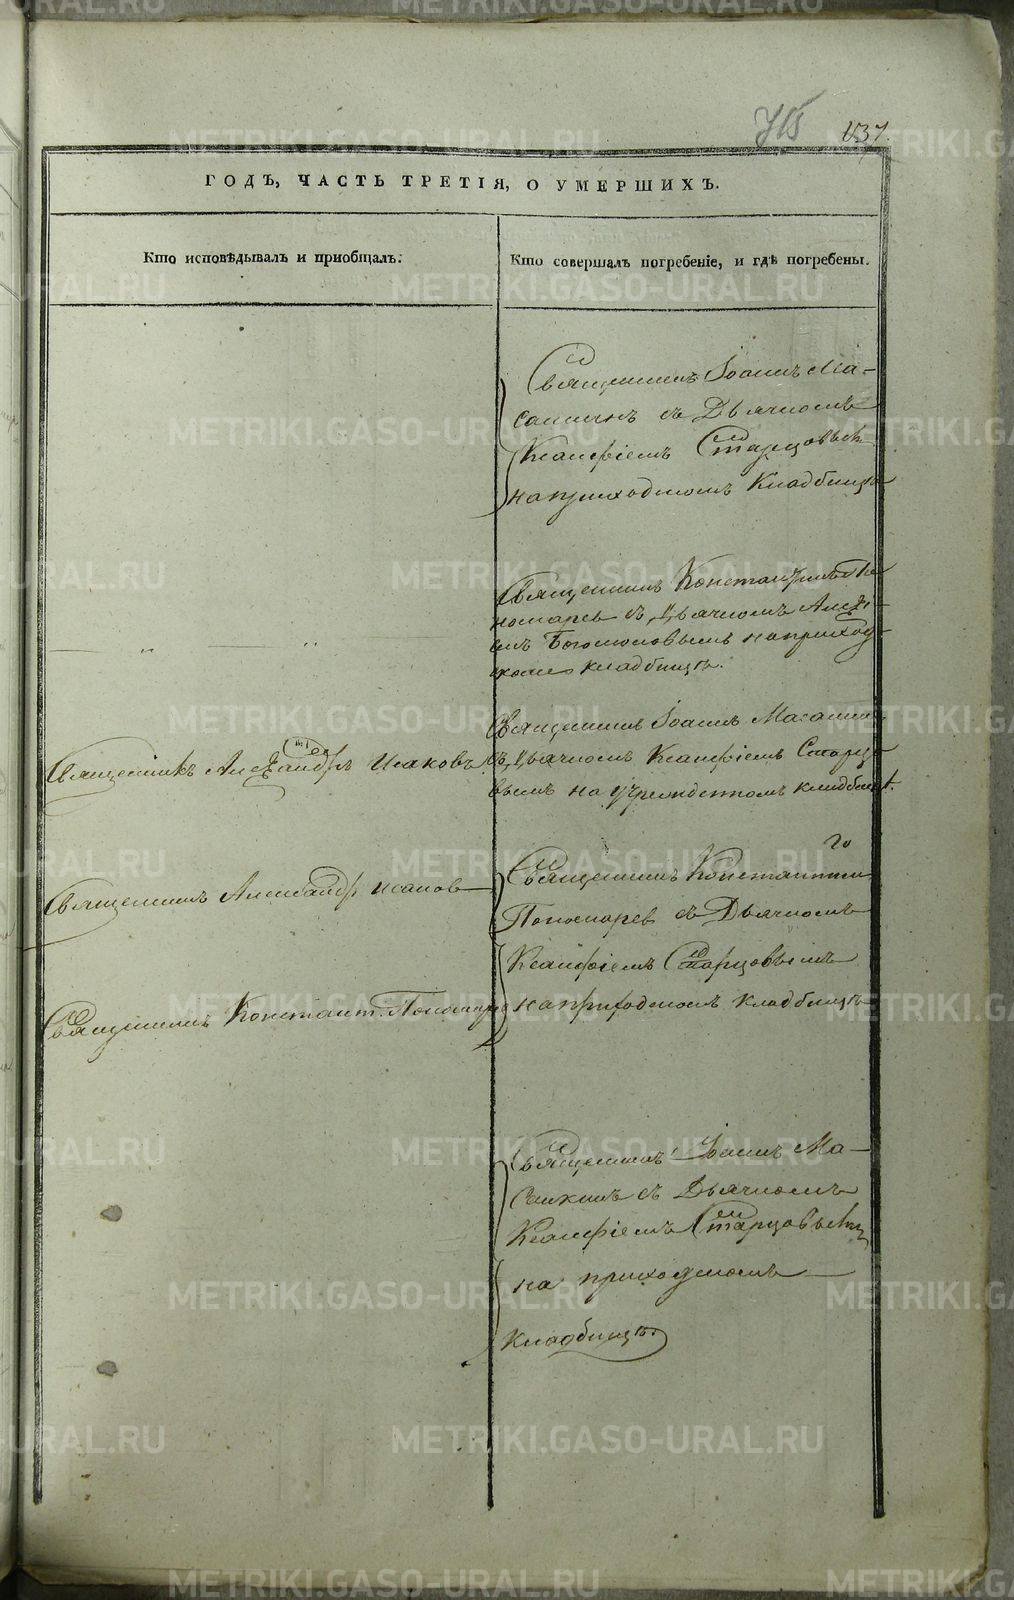 715
1137.
ГОДЪ, ЧАСТЬ ТРЕТІЯ, О УМЕРШИХЪ.
Кто исповѣдывалъ и приобщалъ.
Кто совершалъ погребеніе, и гдѣ погребены.
Священникъ Іоаннъ Ма-
салкинъ съ Дьячкомъ
Ксанфіемъ Старцовымъ
на приходскомъ Кладбищѣ
Священникъ Константинъ По
номаревъ съ Дьячкомъ Алексѣ-
емъ Богомоловымъ на приход-
скомъ кладбищѣ.
Священникъ Іоаннъ Масалкин
съ Дьячкомъ Ксанфіемъ Старцо
вымъ на учрежденномъ кладбищѣ.
Священникъ Александръ Исаковъ
Священникъ Константин
Пономаревъ съ Дьячкомъ
Ксанфіемъ Старцовымъ
на приходскомъ кладбищѣ
Священникъ Александр Исаков
Священникъ Констант. Пономарев
Священникъ Іоаннъ Ма-
салкинъ съ Дьячкомъ
Ксанфіемъ Старцовымъ
на приходскомъ
Кладбищѣ.
METRIKI.GASO-URAL.RU